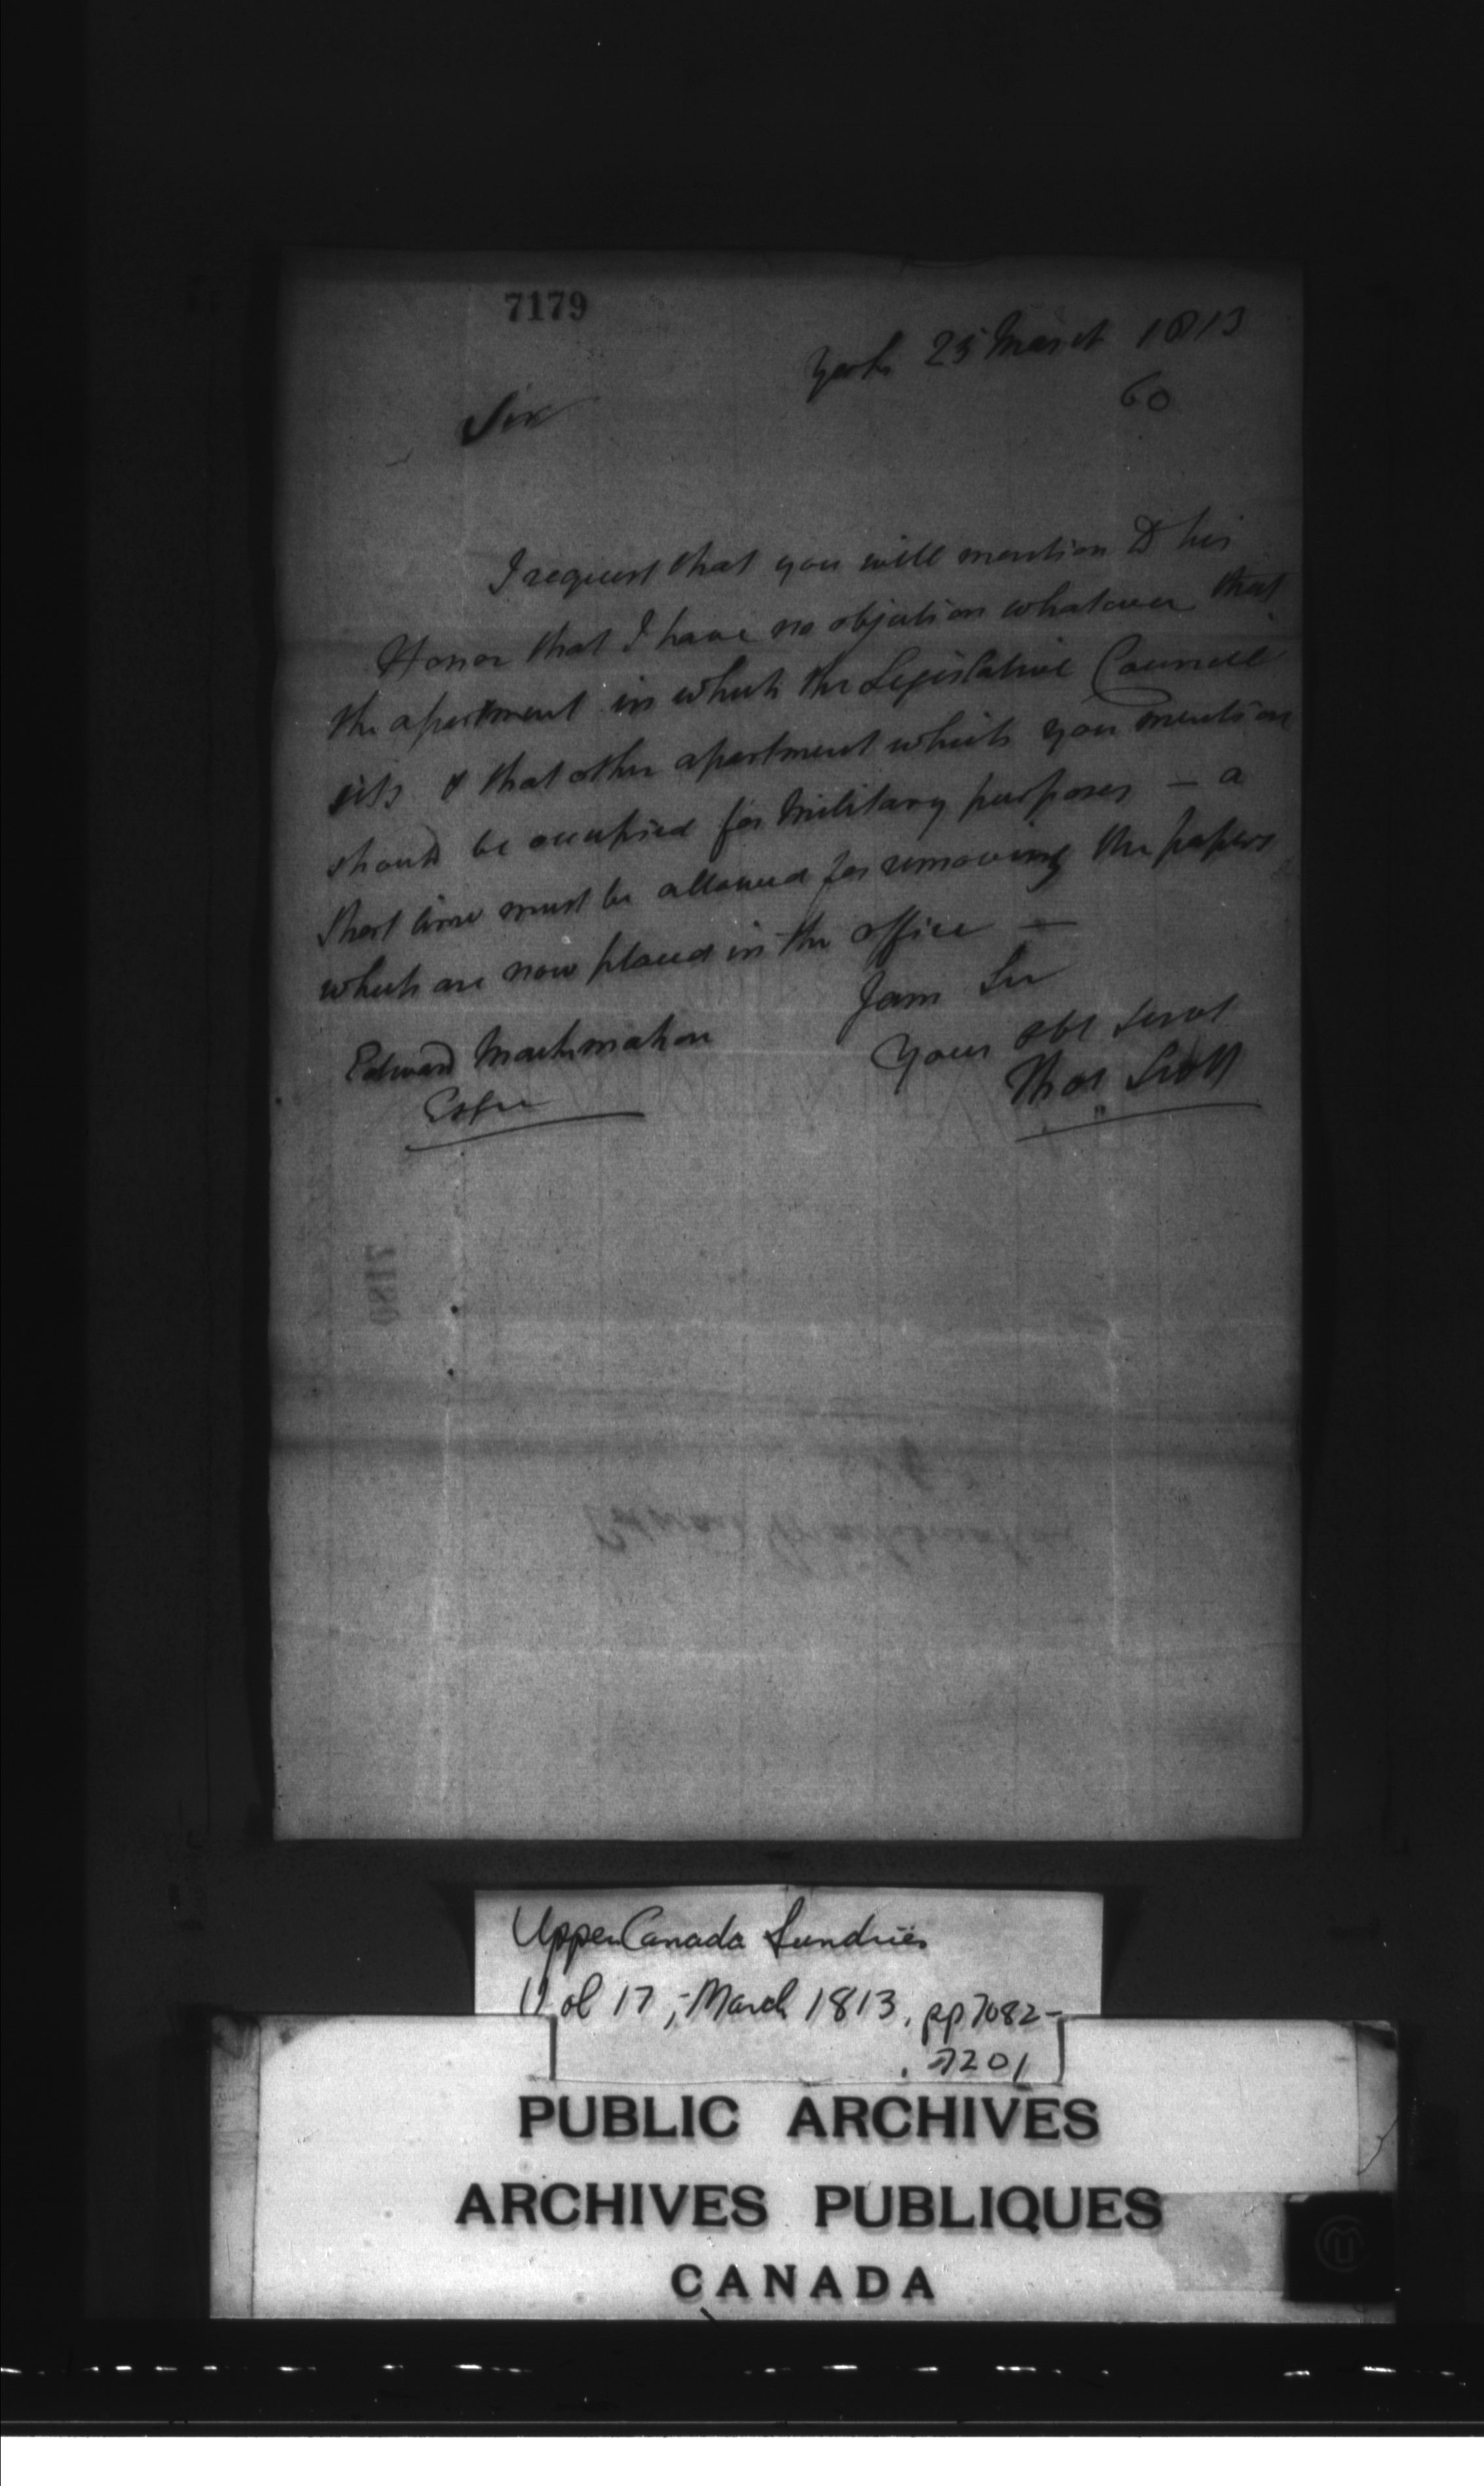 7179
York 25 March 1813
60
Sir
I request that you will mention to his
Honor that I have no objection whatever that
the apartment in which the Legislative Council
sits & that other apartment which you mention
should be occupied for Military purposes – a
short time must be allowed for removing the papers
which are now placed in the office –
I am Sir
Your obt Servt
Thos Scott
Edward Mackmahon
Esqre
7180
Edward Mackmahon
Upper Canada Sundries
Vol 17, - March 1813, pp 7082-
7201
PUBLIC ARCHIVES
ARCHIVES PUBLIQUES
CANADA